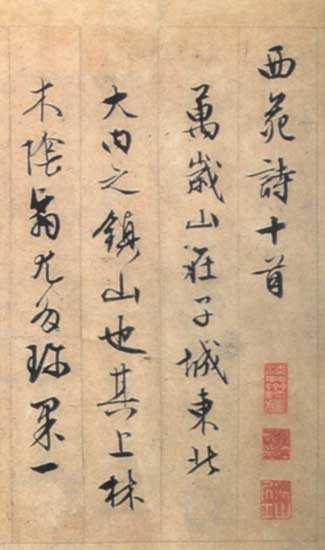 西苑詩十首
萬歲山在子城東北
大內之鎮山也其上林
木陰翳尤多珎果一